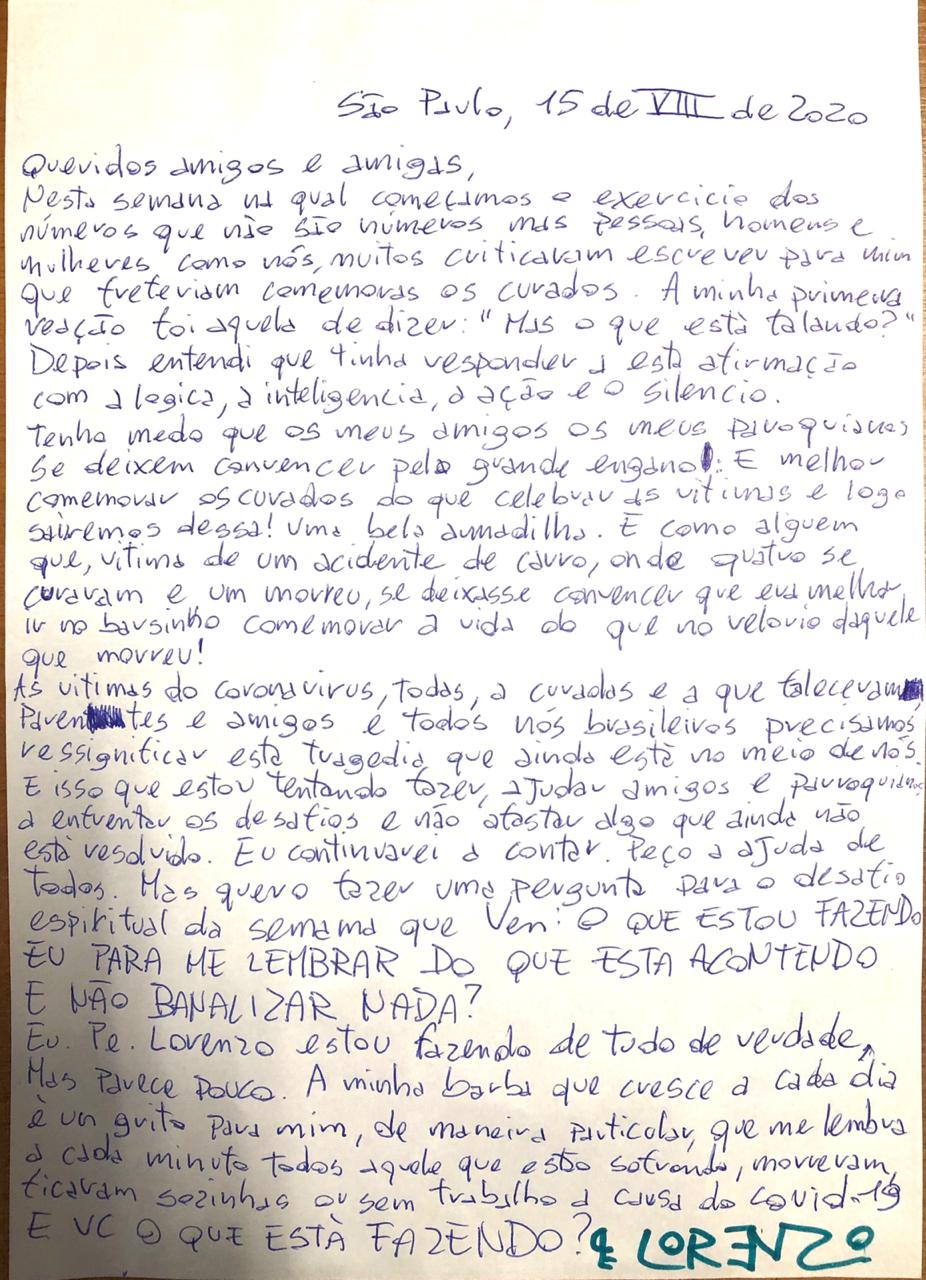 São Paulo, 15 de VIII de 2020
Queridos amigos e amigas,
Nesta semana na qual começamos o exercicio dos
números que não são números mas pessoas, homens e
mulheres, como nós, muitos criticaram escrever para mim
que freteriam comemoras os curados. A minha primeira
reação foi aquela de dizer: "Mas o que està falando?"
Depois entendi que tinha responder a esta afirmação
com a logica, a inteligencia, a ação e o silencio.
Tenho medo que os meus amigos os meus paroquianos
se deixem convencer pelo grande engano: E melhor
comemorar os curados do que celebrar as vitimas e logo
sairemos dessa! Uma bela armadilha. E como alguem
que, vitima de um acidente de carro, onde quatro se
curaram e um morreu, se deixasse convencer que era melhor
ir no barsinho comemorar a vida do que no velorio daquele
que morreu!
As vitimas do coronavirus, todas, a curadas e a que faleceram,
Parentes e amigos e todos nós brasileiros precisamos
ressignificar esta tragedia que ainda està no meio de nós.
E isso que estou tentando fazer, ajudar amigos e parroquianos
a enfrentar os desafios e não afastar algo que ainda não
està resolvido. Eu continuarei a contar. Peço a ajuda de
todos. Mas quero fazer uma pergunta para o desafio
espiritual da semama que ven: O QUE ESTOU FAZENDO
EU PARA ME LEMBRAR DO QUE ESTA ACONTENDO
E NÃO BANALIZAR NADA?
Eu. Pe. Lorenzo estou fazendo de tudo de verdade,
Mas parece pouco. A minha barba que cresce a cada dia
è un grito para mim, de maneira particolar, que me lembra
a cada minuto todos aquele que estão sofrendo, morreram,
ficaram sozinhas ou sem trabalho a causa do covid-19
E VC O QUE ESTÀ FAZENDO? LORENZO